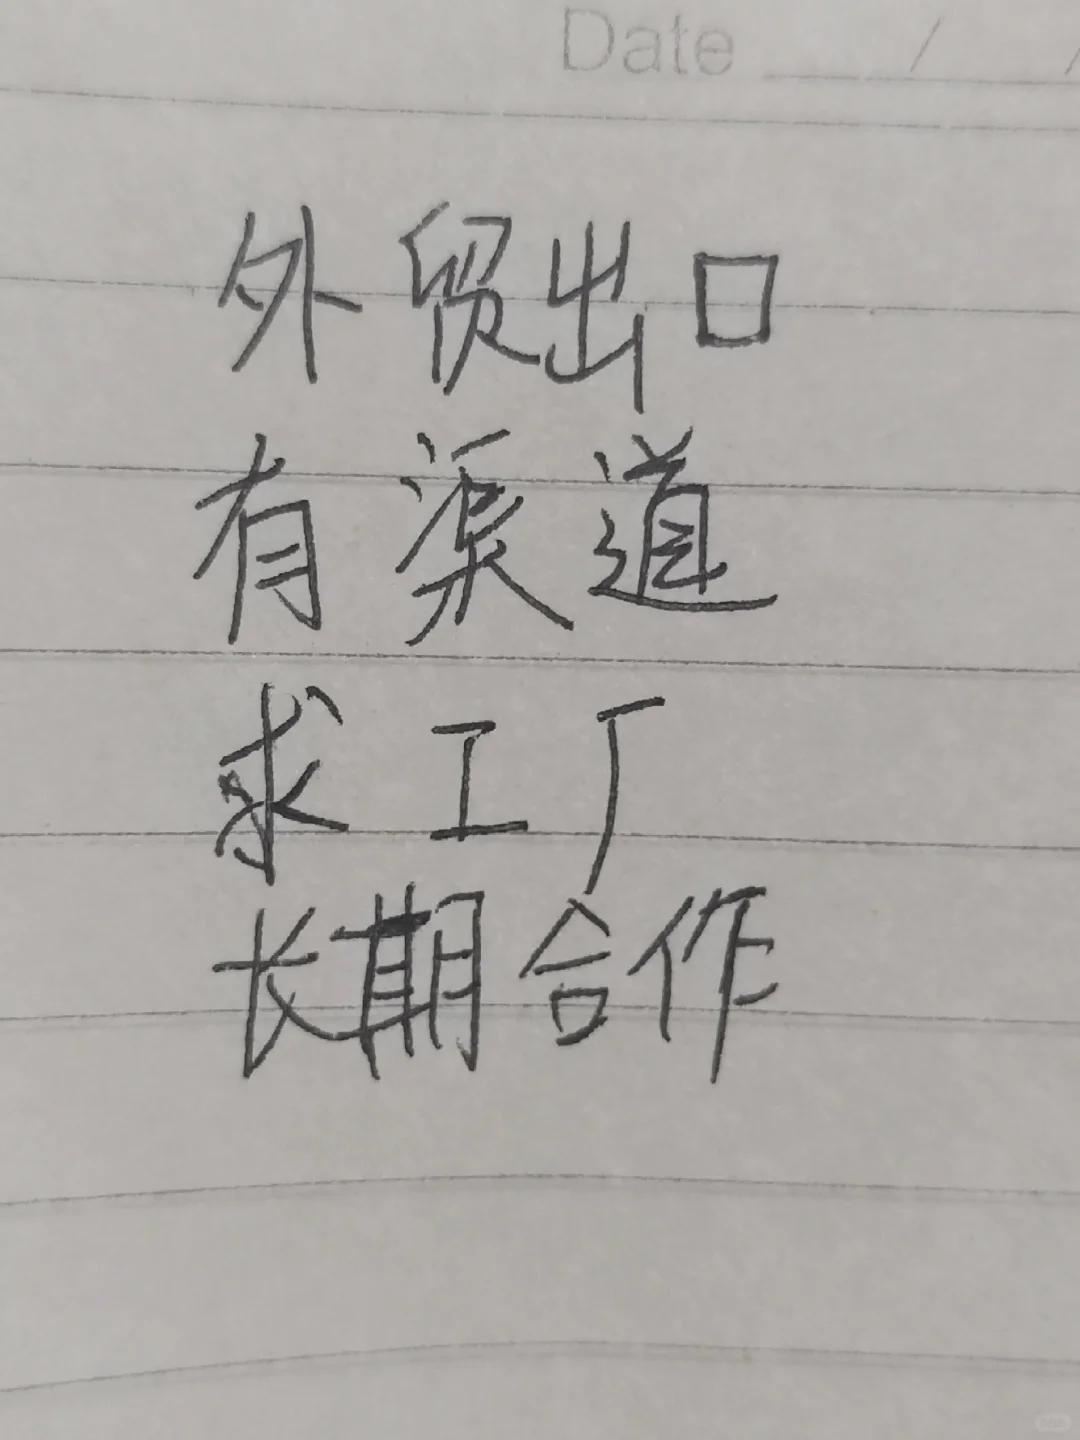 Date / /
外贸出口
有渠道
求工厂
长期合作